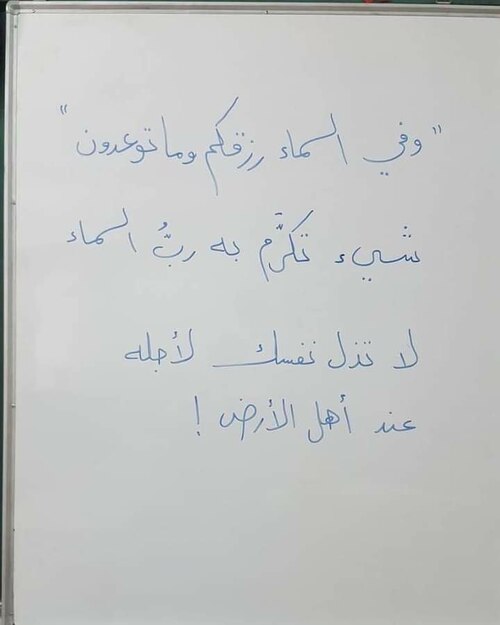 "وفي السماء رزقكم وما توعدون"
شيء تكرَّم به ربُّ السماء
لا تذل نفسك لأجله
عند أهل الأرض !